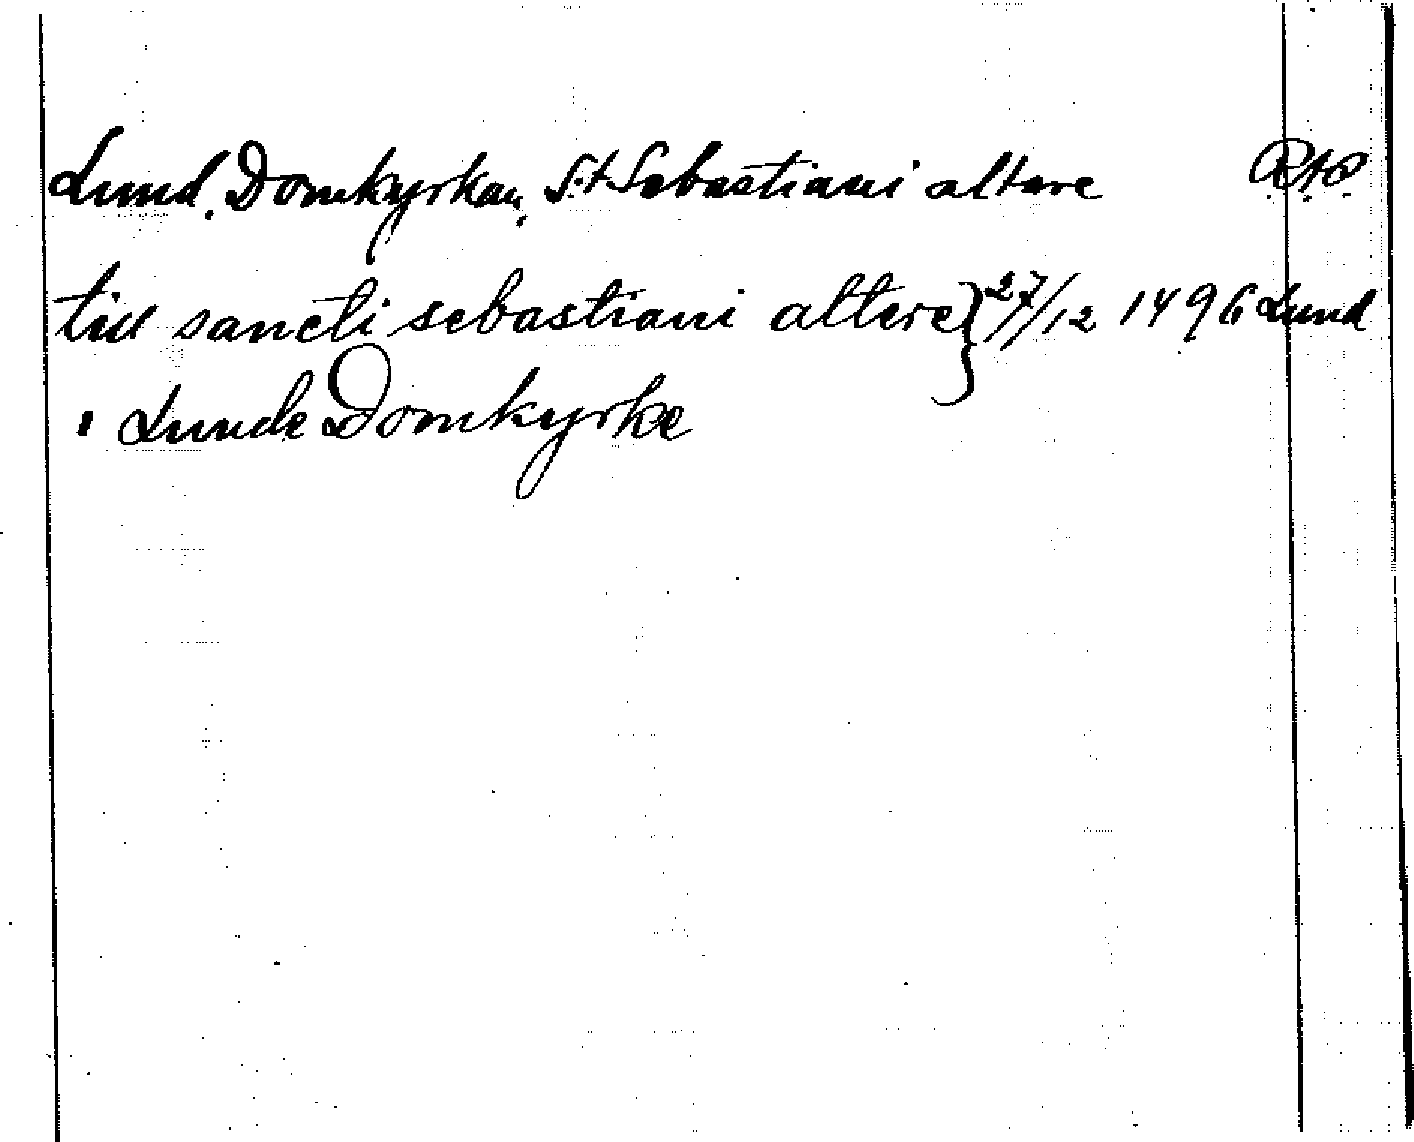 Lund. Domkyrkan. S:t Sebastiani altare
till sancti sebastiani altere } 27/12 1496 Lund
i Lunde Domkyrke